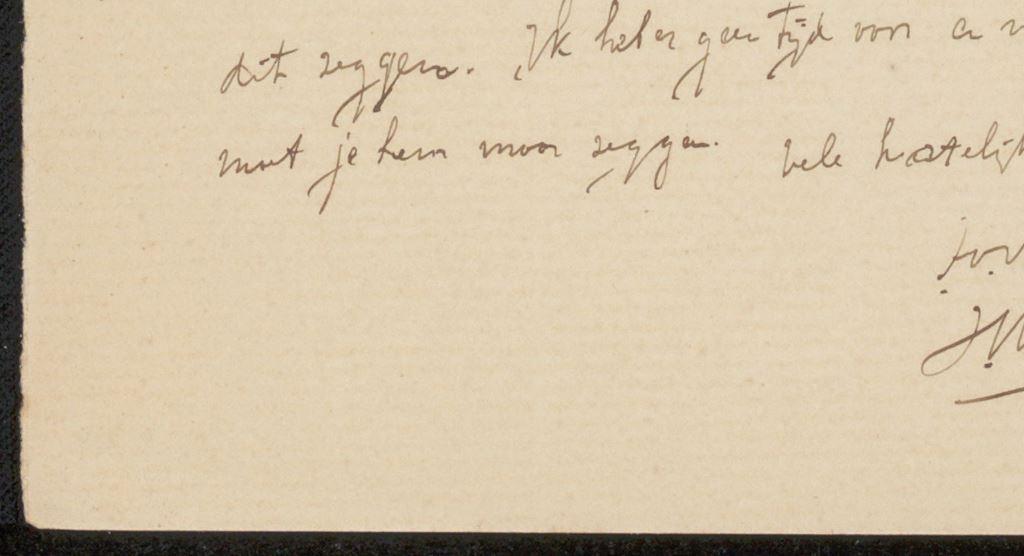 dit zeggen. Ik heb er geen tijd voor en
moet je hem maar zeggen. Vele hartelijk
t.o.v.